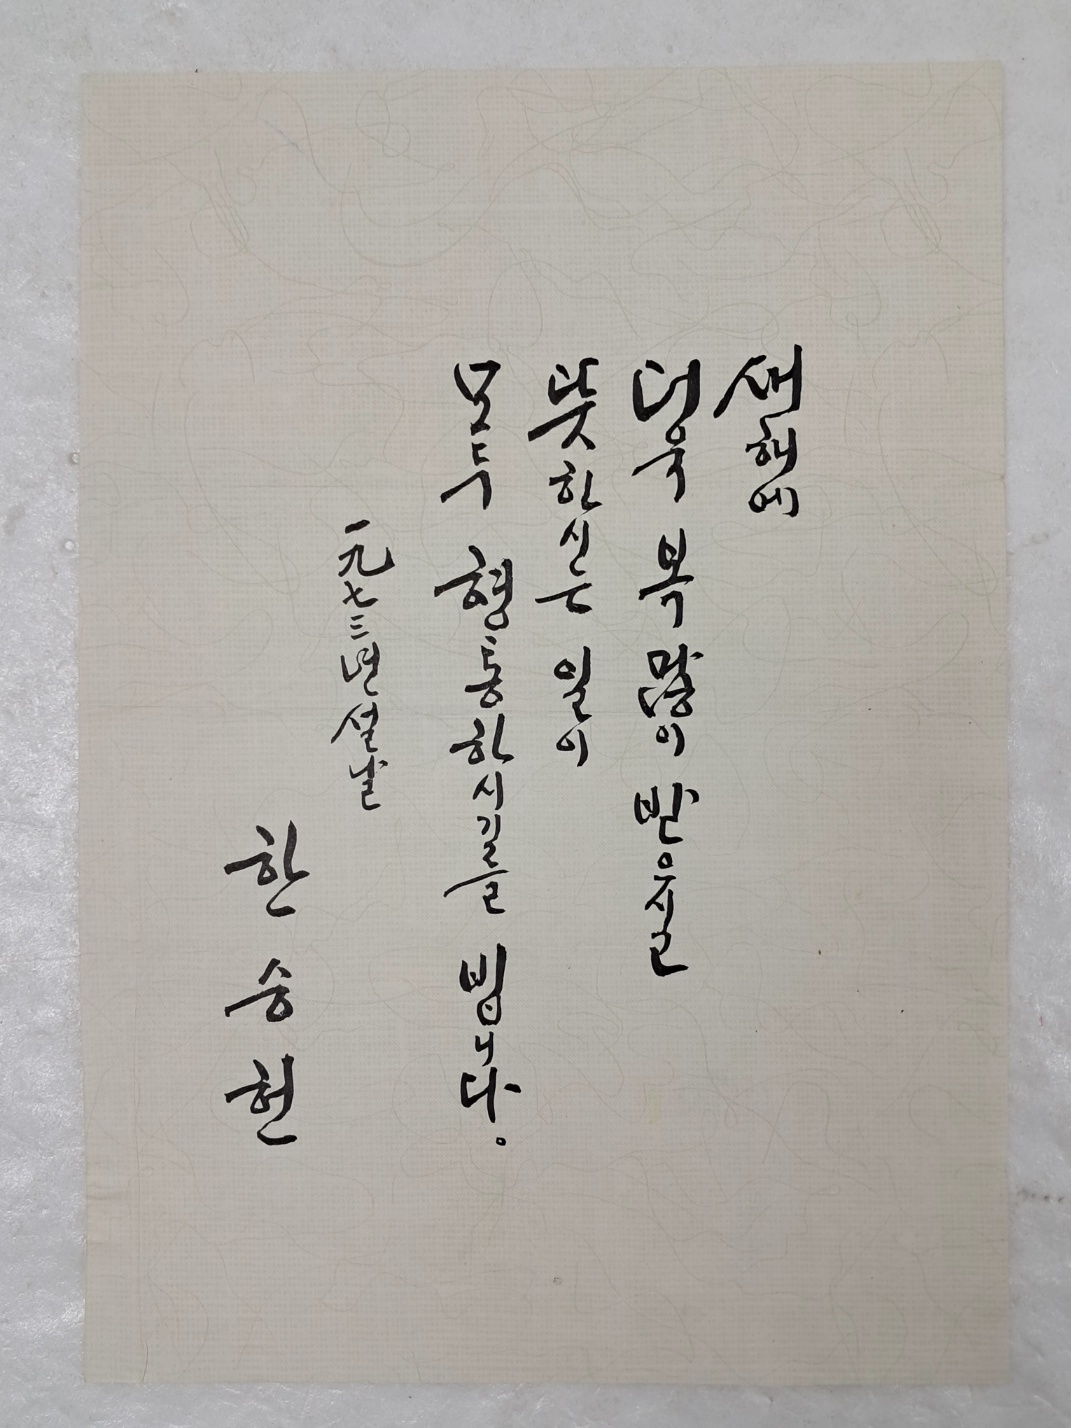 새해에
더욱 복 많이 받으실
뜻하신는 일이
모두 형통하시길을 빕니다.
一九七三년 설날
한승현